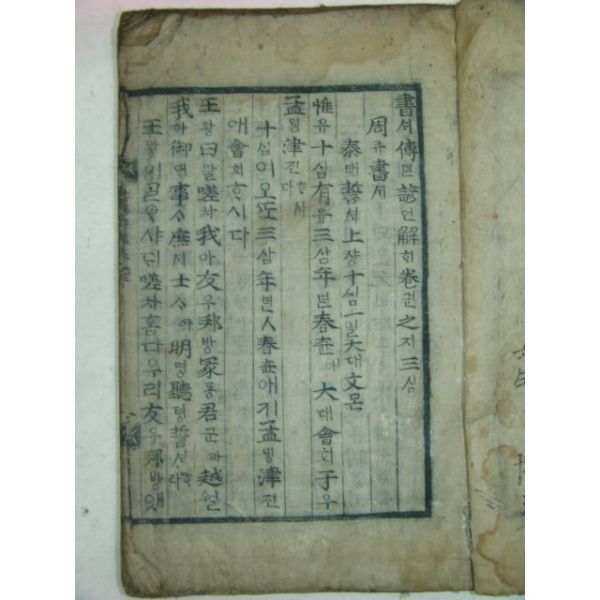 書셔傳뎐諺언解ᄒᆡ卷권之지三삼
周쥬書셔
泰태誓셔上샹十십一일大대文문
惟유十십有유三삼年년春츈애大대會회于우
孟ᄆᆡᆼ津진ᄒᆞ시다
十십이오ᄯᅩ三삼年년人春츈애기孟ᄆᆡᆼ津진
애會회ᄒᆞ시다
王왕曰왈嗟차我아友우邦방冢통君군과越월
我아御어事ᄉᆞ庶셔士ᄉᆞ아明명聽텽誓셔ᄒᆞ라
王왕이ᄀᆞᆯᄋᆞ샤ᄃᆡ嗟차홉다우리友우邦방앳